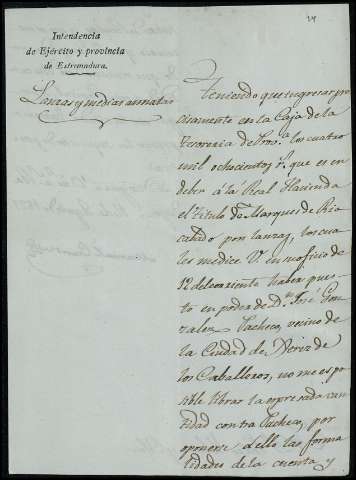 24
Intendencia
de Ejército y provincia
de Estremadura.
Lanzas y medias annatas
Teniendo que ingresar pre
cisamente en la Caja de la
Tesoreria de Prov.a los cuatro
mil ochocientos r.s que es en
deber á la Real Hacienda
el Titulo de Marques de Rio
cabado por lanzas, los cua
les me dice V. en su oficio de
12 del corriente haber pues
to en poder de D.n José Gon
zalez Pacheco, vecino de
la Ciudad de Xerez de
los Caballeros, no me es po
sible librar la espresada can
tidad contra Pacheco, por
oponerse á ello las forma
lidades de la cuenta y